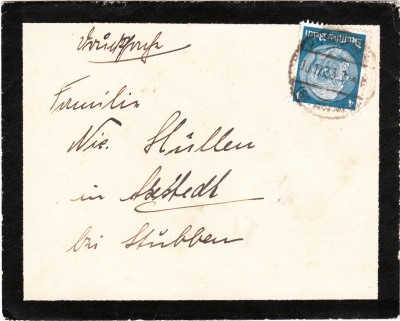 Drucksache
Deutsches Reich
4
Familie
Nic. Hüllen
in Axstedt
bei Stubben